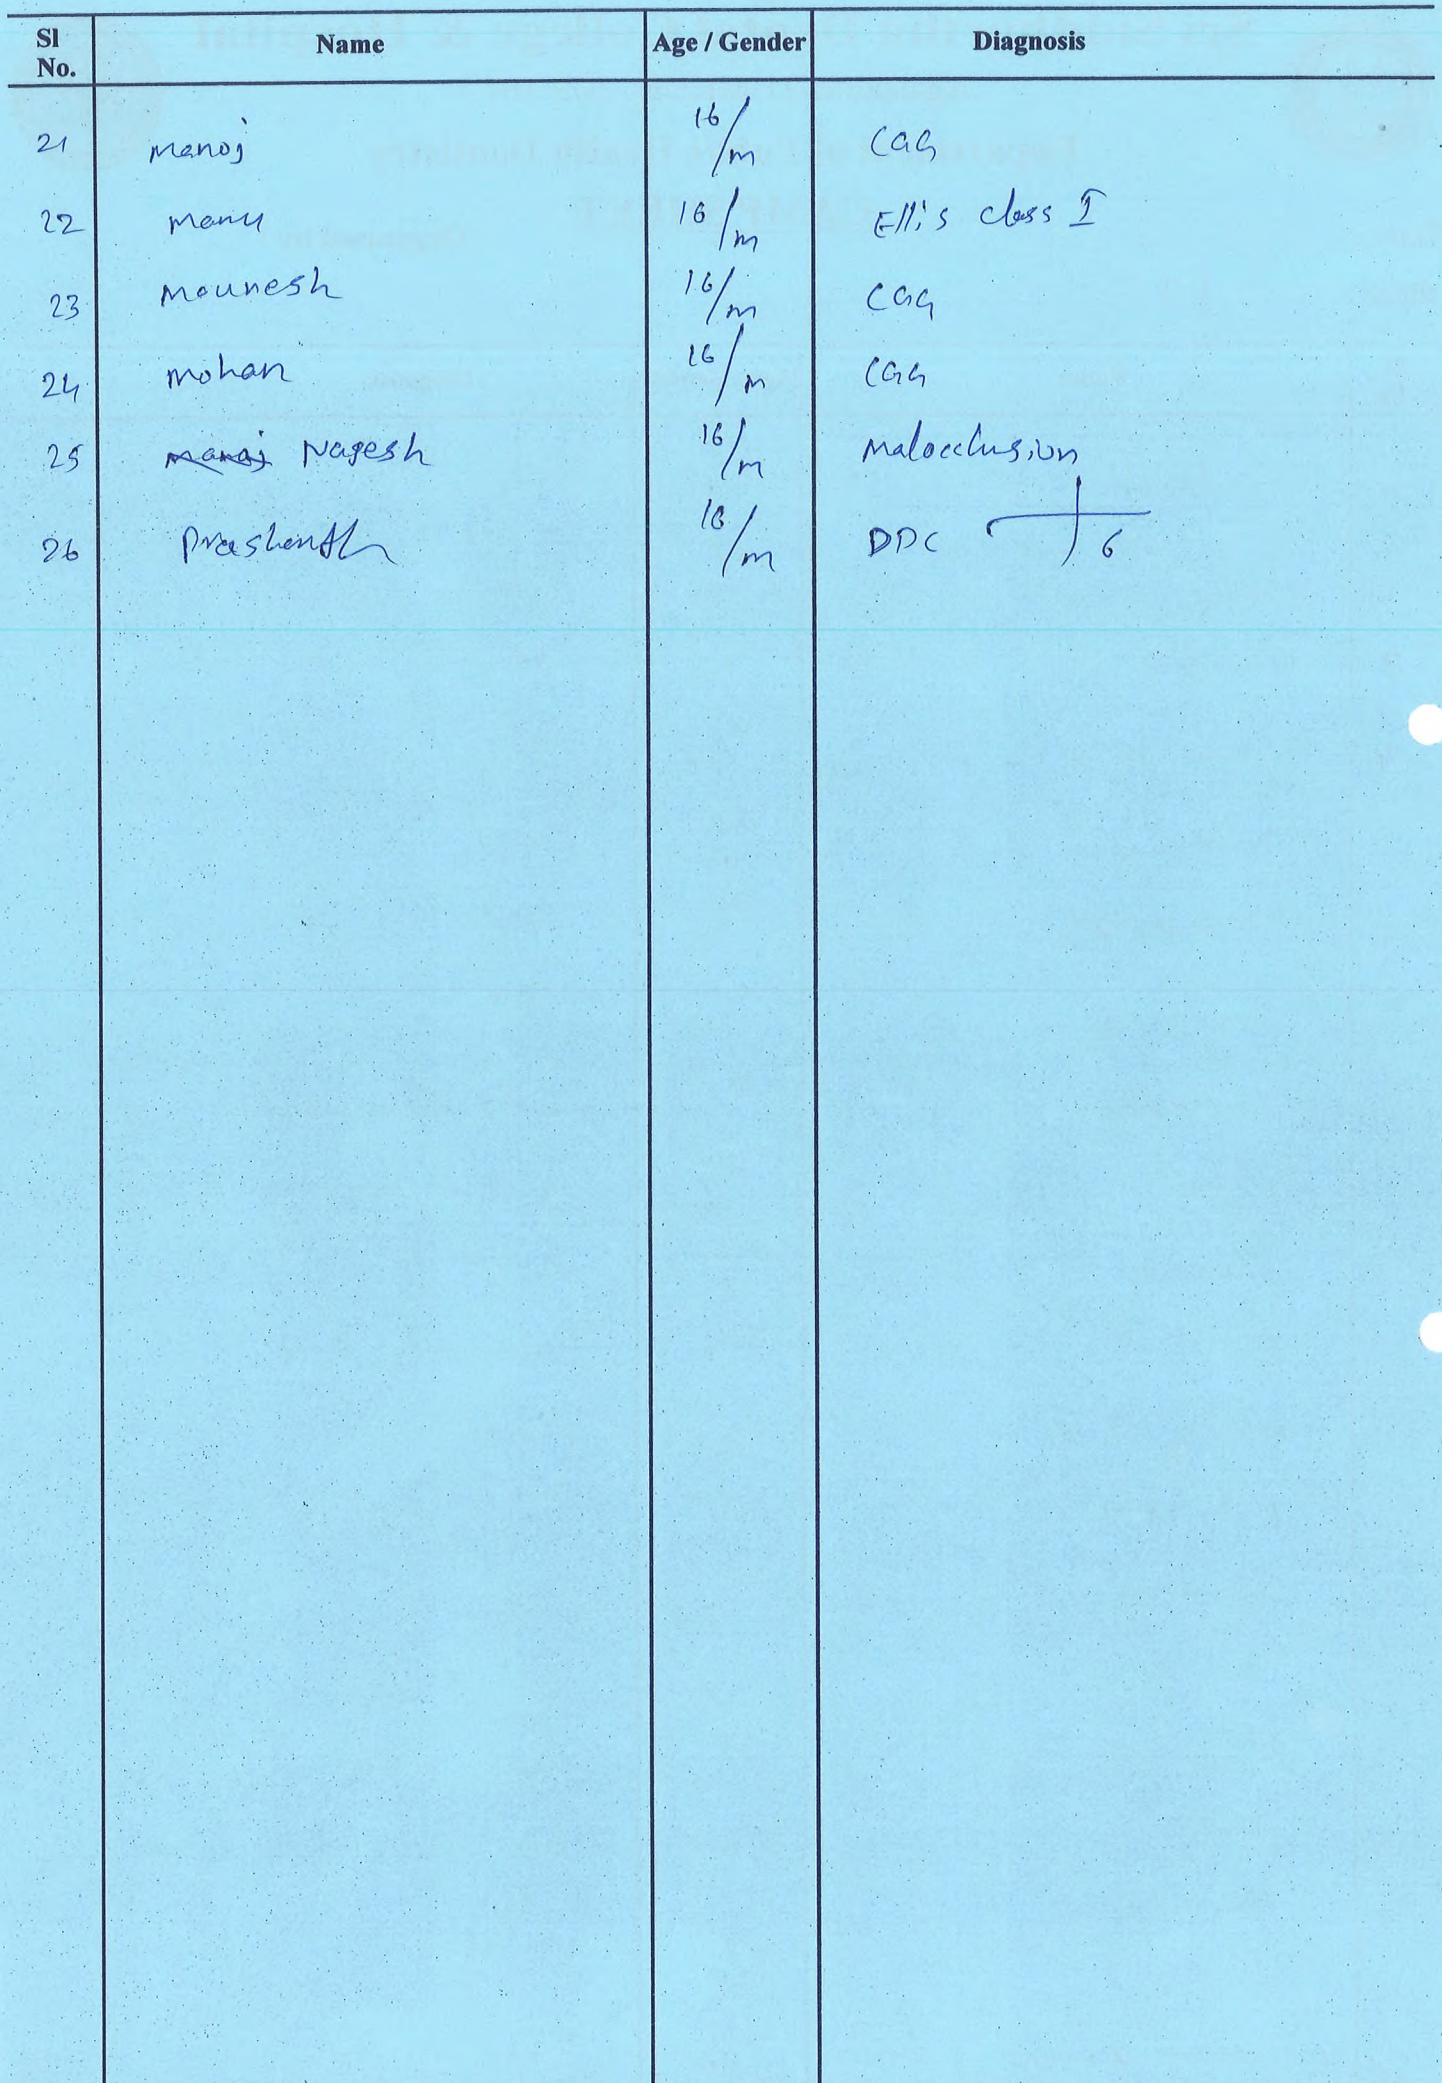 Sl No. Name Age / Gender Diagnosis
21 Manoj 16/m CGG
22 Manu 16/m Ellis class I
23 Mounesh 16/m CGG
24 Mohan 16/m CGG
25 Manoj Nagesh 16/m Malocclusion
26 Prashanth 16/m DDC 6